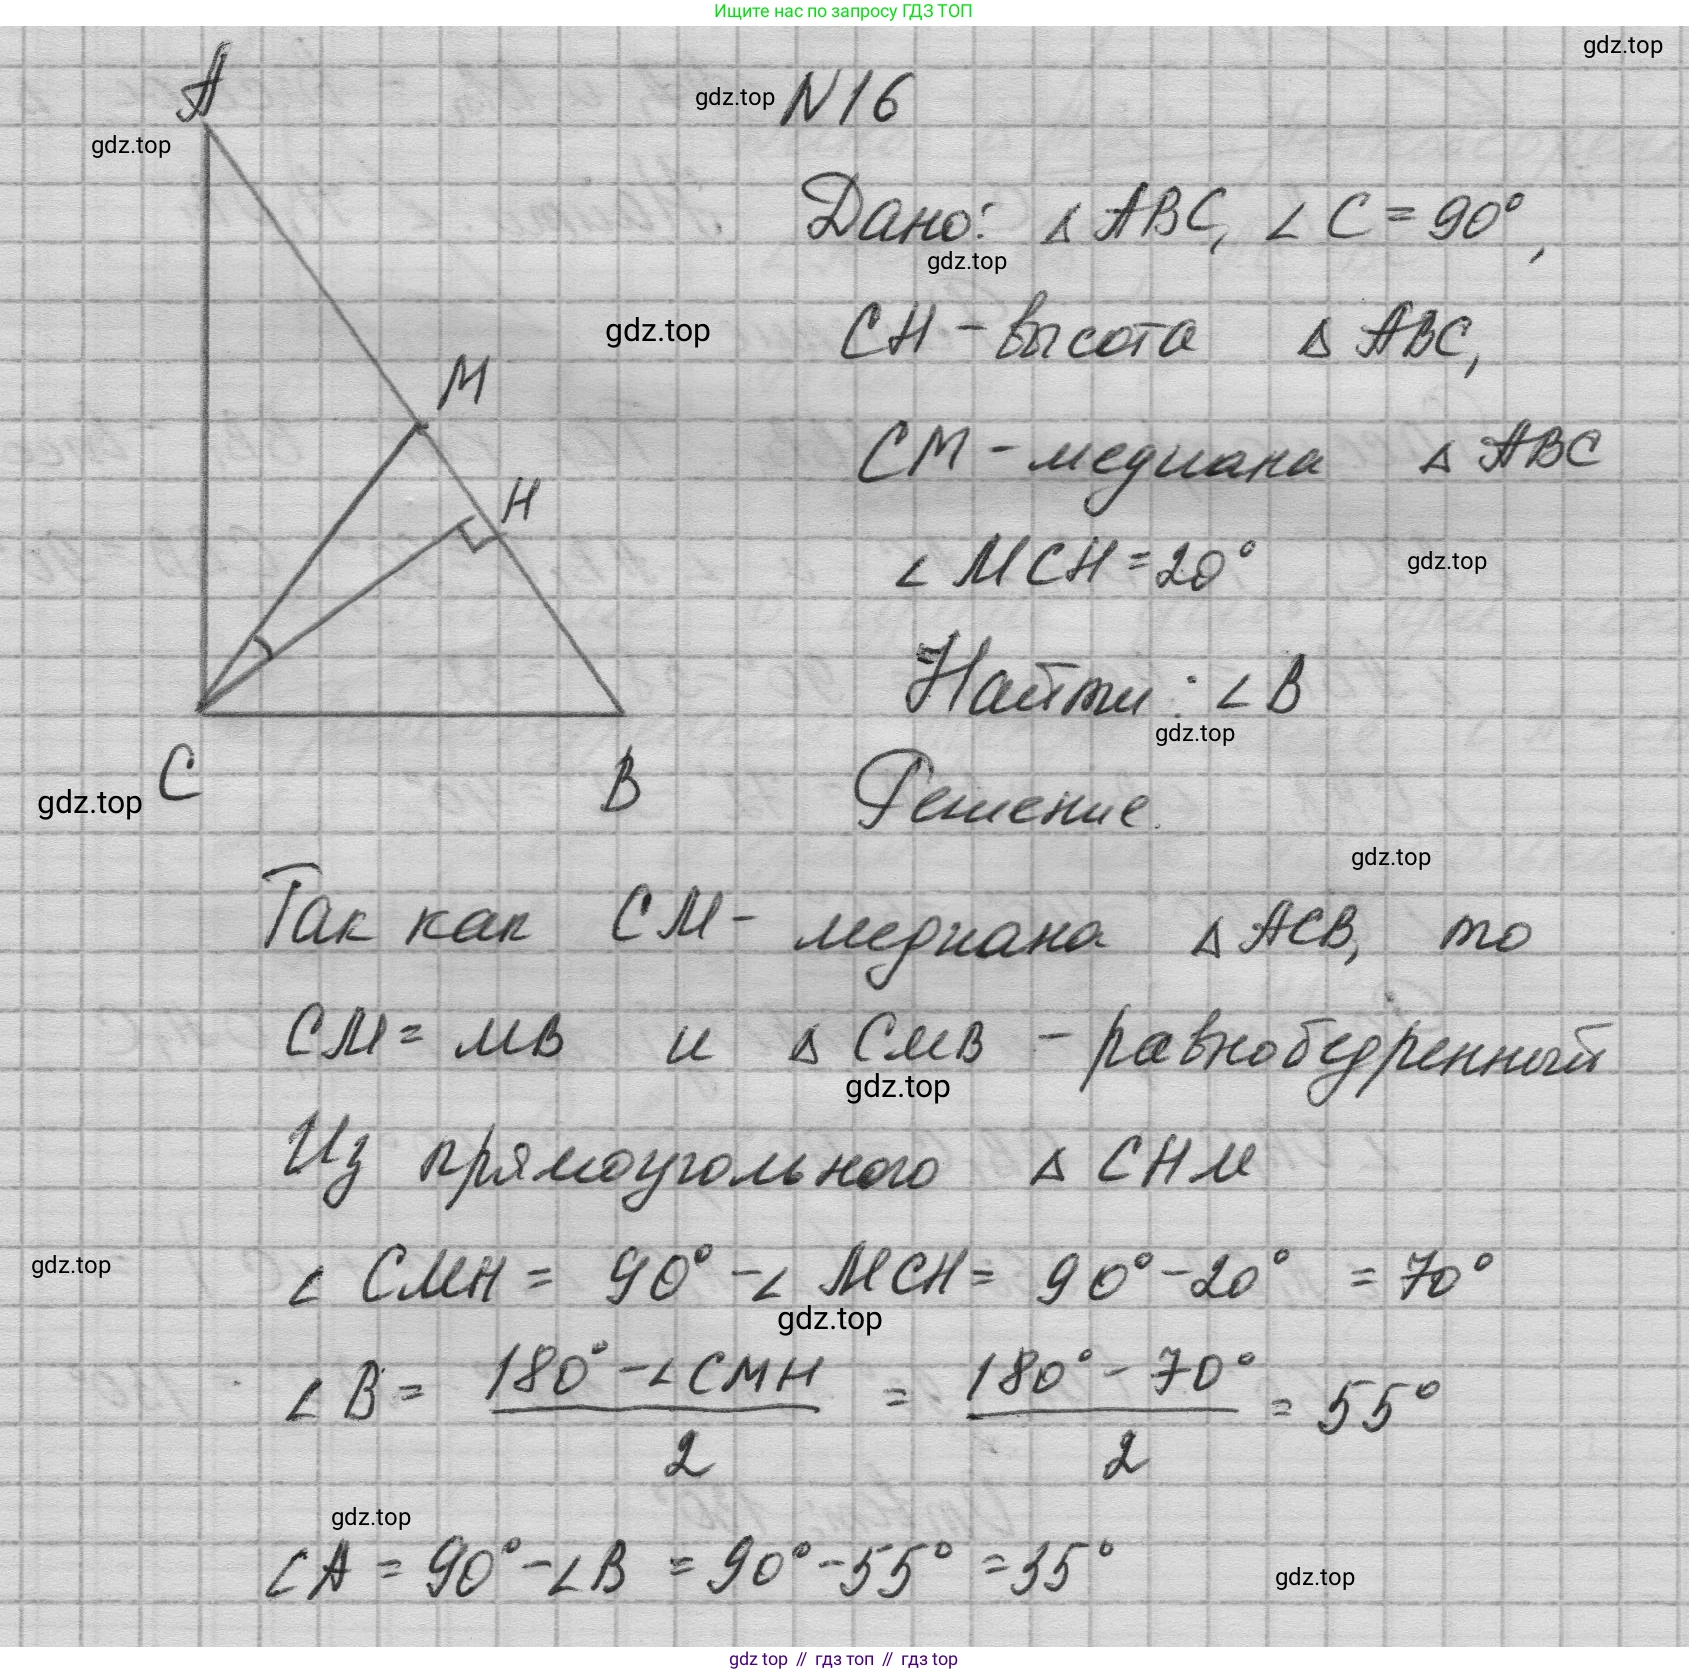 Ищите нас по запросу ГДЗ ТОП
gdz.top
A
gdz.top
gdz.top
N16
Дано: △ ABC, ∠ C = 90°,
gdz.top
CH - высота △ ABC,
gdz.top
M
CM - медиана △ ABC
H
∠ MCH = 20°
gdz.top
Найти: ∠ B
gdz.top
C
B
gdz.top
Решение.
gdz.top
Так как CM - медиана △ ACB, то
CM = MB и △ CMB - равнобедренный
gdz.top
Из прямоугольного △ CHM
gdz.top
∠ CMH = 90° - ∠ MCH = 90° - 20° = 70°
gdz.top
∠ B = 180° - ∠ CMH / 2 = 180° - 70° / 2 = 55°
gdz.top
∠ A = 90° - ∠ B = 90° - 55° = 35°
gdz.top
gdz top // гдз топ // гдз top